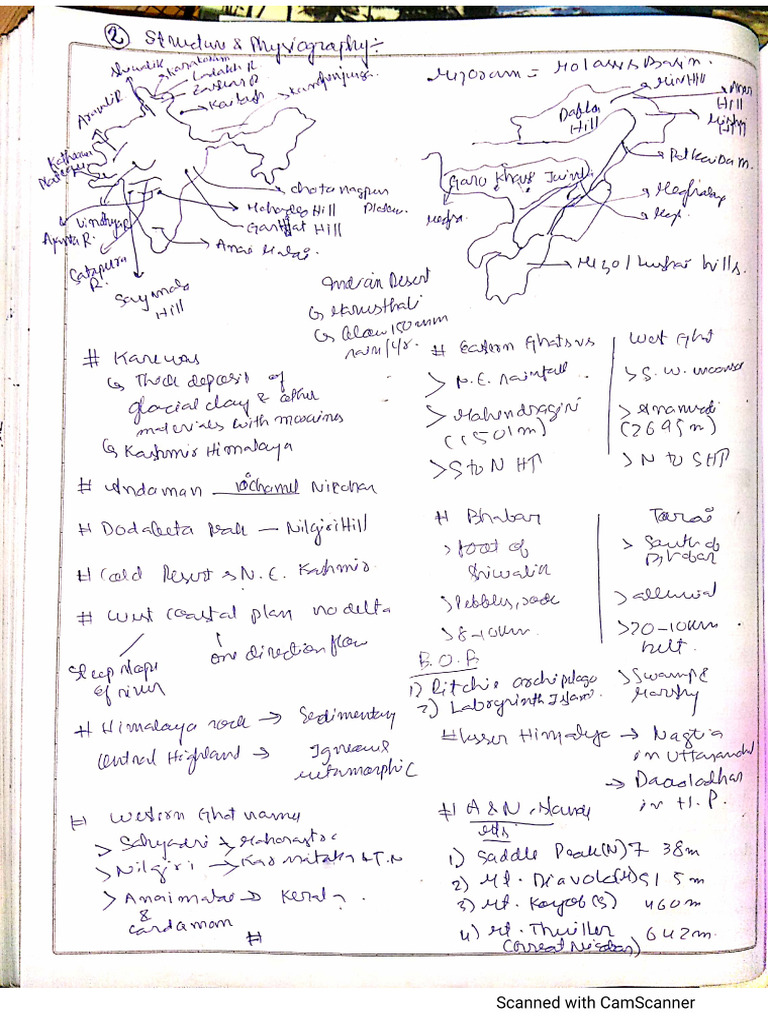 ② Structure & Physiography:-
Shiwalik
Karakoram
Ladakh R
Zaskar R
Kailash
Kanchunjunga
Aravali R.
Vindhya R
Ajanta R.
Satapura R.
Chota nagpur Plateau
Mahadeo Hill
Garhjat Hill
Anai Malai
Mizoram = Molassis Basin.
Miri Hill
Abor Hill
Mishmi Hill
Dafla Hill
Patkai Bum
Garo Khasi Jaint
Meghalaya
Mizo / Lushai hills.
Indian Desert
↳ Marusthali
↳ Below 150mm rain/yr.
# Karewas
↳ Thick deposit of
glacial clay & other
materials with moraines
↳ Kashmir Himalaya
# Andaman 10° channel Nicobar
# Dodabeta Peak — Nilgiri Hill
# Cold Desert → N.E. Kashmir
# West Coastal plan no delta
Steep slope of river
one direction flow
# Himalaya rock → Sedimentary
Central Highland → Igneous metamorphic
# Western Ghat names
> Sahyadri → Maharastra
> Nilgiri → Karnataka & T.N
> Anaimalai → Kerala.
& cardamom
#
# Eastern Ghats vs West Ghat
> N.E. rainfall > S.W. monsoon
> Mahendragiri (1501m) > Anamudi (2695m)
> S to N HT > N to S HT
# Bhabar Tarai
> foot of Shiwalik > South of Bhabar
> Pebbles, rock > alluvial
> 8-10km. > 20-10km belt.
> Swamp & Marshy
B.O.B
1) Ritchie archipelago
2) Labryrinth Island.
# Lesser Himalya → Nagtia in Uttarakhand
→ Daaoladhar in H.P.
# A & N Islands
Mts
1) Saddle Peak (N) 738m
2) Mt. Diavola (M) 515m
3) Mt. Koyob (S) 460m
4) Mt. Thuiller 642m.
(Great Nicobar)
Scanned with CamScanner